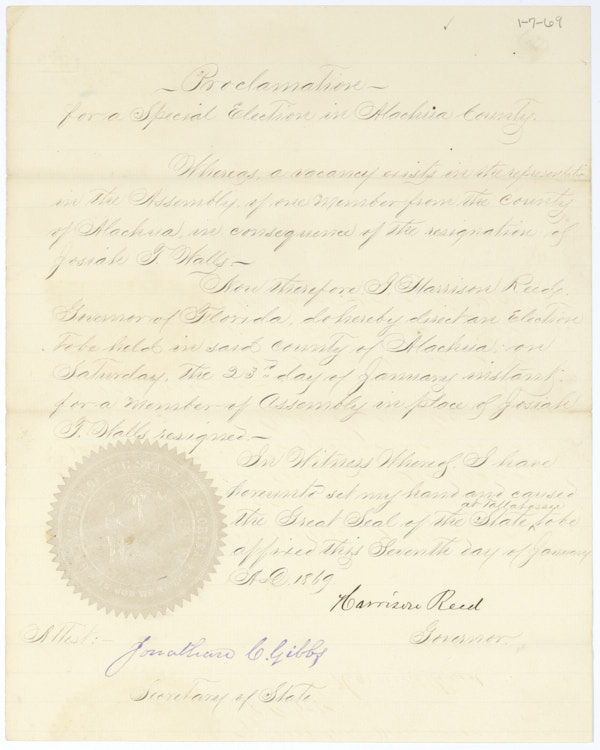 1-7-69
Proclamation
for a Special Election in Alachua County.
Whereas, a vacancy exists in the
in the Assembly, of one Member from the County
of Alachua, in consequence of the resignation of
Josiah T. Walls—
Now therefore I, Harrison Reed,
Governor of Florida, do hereby direct an Election
to be held in said County of Alachua, on
Saturday, the 23rd day of January instant,
for a Member of Assembly in place of Josiah
T. Walls resigned—
In Witness Whereof, I have
hereunto set my hand and caused
at Tallahassee
the Great Seal of the State, to be
affixed this Seventh day of January
A.D. 1869
Harrison Reed
Governor
Attest:—
Jonathan C. Gibbs
Secretary of State